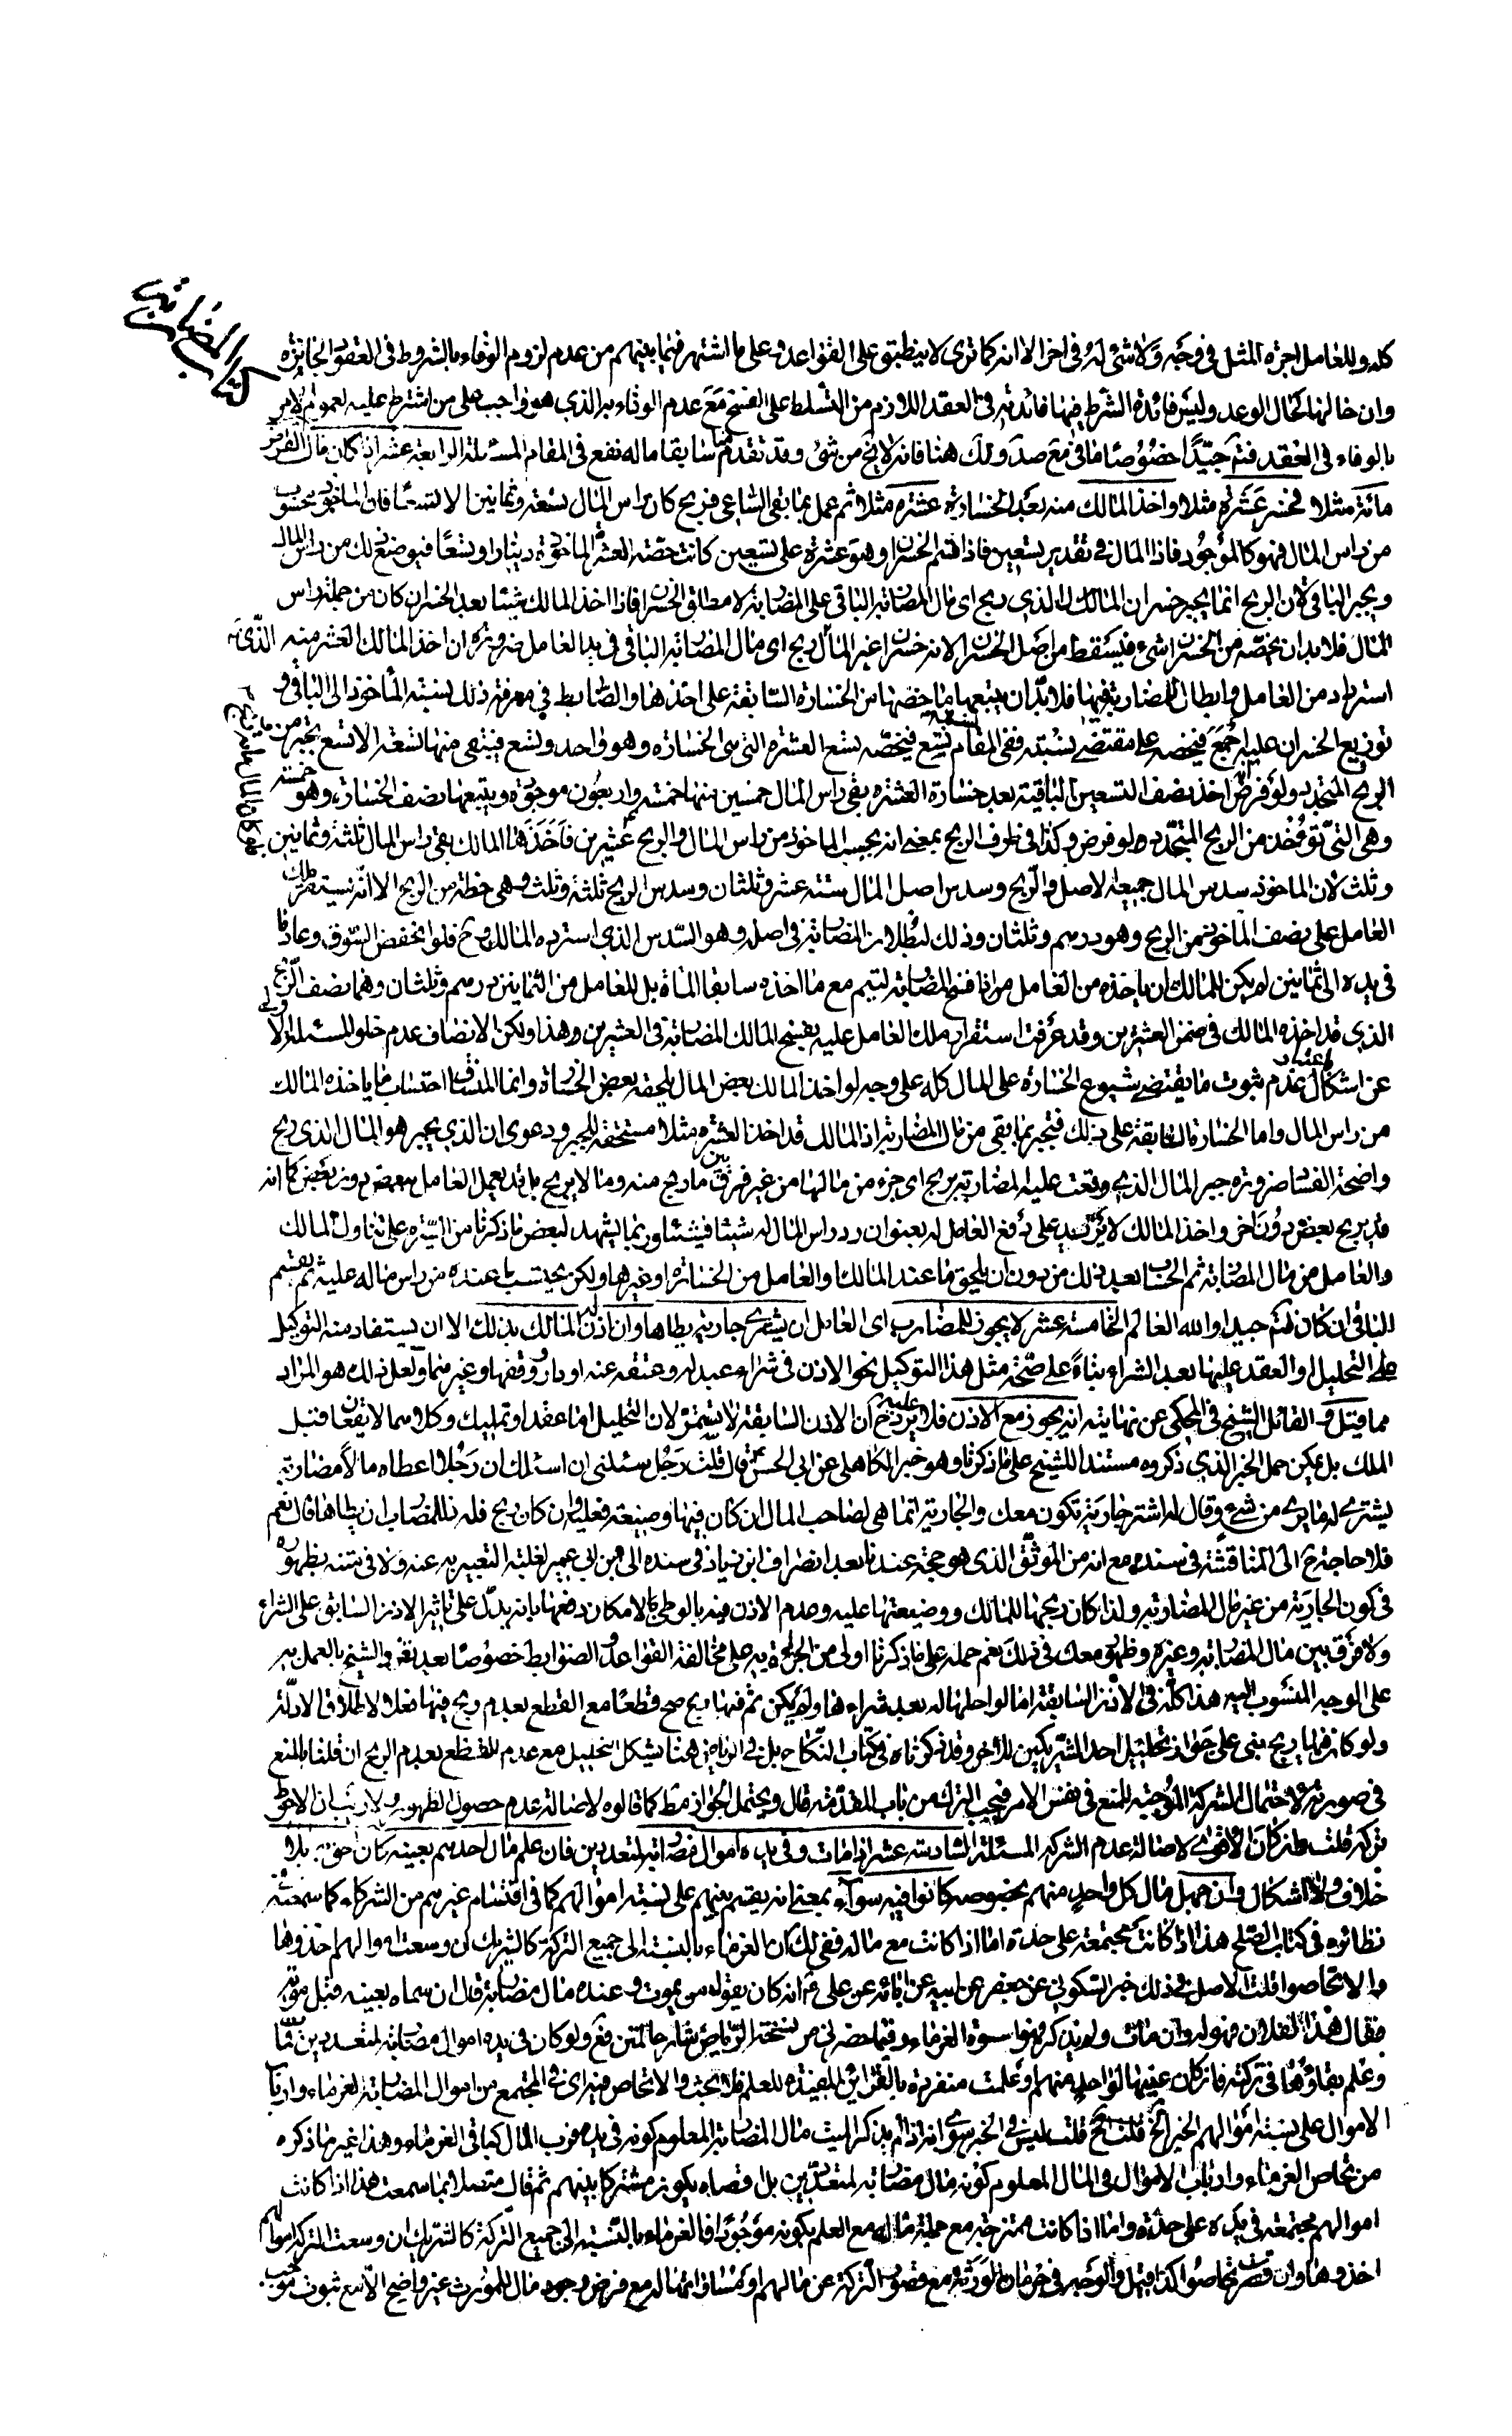 كتاب المضاربة
كله وللعامل اجرة المثل في وجه ولا شئ له في اخر الا انه كما ترى لا ينطبق على القواعد وعلى ما اشتهر فيما بينهم من عدم لزوم الوفاء بالشروط في العقود الجائزه
وان حالها كحال الوعد وليس فائدة الشرط فيها فائدته في العقد اللازم من التسلط على الفسخ مع عدم الوفاء به الذي هو واجب على من اشترط عليه لعموم الامر
بالوفاء في العقد فتم جيدا خصوصا مافى مع صد ولك هنا فانه لا يخ من شئ وقد تقدم منا سابقا ماله نفع في المقام المسئلة الرابعة عشر اذا كان مال القراض
مائة مثلا فخسر عشرة مثلا واخذ المالك منه بعد الخسارة عشرة مثلا ثم عمل بما بقى الساعى فربح كان راس المال تسعة وثمانين الا تسعا فان الماخوذ محسوب
من راس المال فهو كالموجود فاذا المال في تقدير تسعين فاذا قسم الخسران وهو عشرة على تسعين كانت حصة العشرة الماخوذة دينارا وتسعا فيوضع ذلك من راس المال
ويجبر الباقى لان الربح انما يجبر خسران المالك الذي ربح اى مال المضاربة الباقى على المضاربة لا مطلق الخسران فاذا اخذ المالك شيئا بعد الخسران كان من جملة راس
المال فلا بد ان يخصه من الخسران شئ فيسقط من اصل الخسران لانه خسران غير المال الذى ربح اى مال المضاربة الباقى في يد العامل ضرورة ان اخذ المالك العشر منه
استرداد من العامل وابطال للمضاربة فيها فلا بد ان يتبعها ما خصها من الخسارة السابقة على اخذها والضابط في معرفة ذلك نسبة المأخوذ الى الباقى و
توزيع الخسران عليه اجمع فيخصه على مقتضى نسبته ففى المقام نسبته تسع فيخصه تسع العشرة التى هى الخسارة وهو واحد وتسع فيبقى منها تسعة الا تسع يجبر من
الربح المتجدد ولو فرض اخذ نصف التسعين الباقية بعد خسارة العشرة بقى راس المال خمسين منها خمسة واربعون موجودة ويتبعها نصف الخسارة وهو خمسة
وهى التى تؤخذ من الربح المتجدد لو فرض وكذا في طرف الربح بمعنى انه يحسب الماخوذ من راس المال والربح عشرين فاخذها المالك بقى راس المال ثلثة وثمانين
وثلث لان الماخوذ سدس المال جميعه الاصل والربح وسدس اصل المال ستة عشر وثلثان وسدس الربح ثلثة وثلث وهى حظه من الربح الا انه يستقر ملك
العامل على نصف الماخوذ من الربح وهو درهم وثلثان وذلك لبطلان المضاربة في اصله وهو السدس الذى استرده المالك وح فلو انخفض السوق وعاد ما
في يده الى ثمانين لم يكن للمالك ان ياخذه من العامل مرادا فسخ المضاربة ليتم مع ما اخذه سابقا المأة بل للعامل من الثمانين درهم وثلثان وهما نصف الربح
الذي قد اخذه المالك في ضمن العشرين وقد عرفت استقرار ملك العامل عليه بفسخ المالك المضاربة في العشرين وهذا ولكن الانصاف عدم خلو المسئلة الاولى
عن اشكال لعدم ثبوت ما يقتضى شيوع الخسارة على المال كله على وجه لو اخذ المالك بعض المال يلحقه بعض الخسارة وانما المسلم احتساب ما ياخذه المالك
من راس المال واما الخسارة السابقة على ذلك فتجبر بما بقى من مال المضاربة اذ المالك قد اخذ العشرة مثلا مستحقة للجبر ودعوى ان الذي يجبر هو المال الذى ربح
واضحة الفساد ضرورة جبر المال الذي وقعت عليه المضاربة بربح اى جزء من مالها من غير فرق بين ما ربح منه وما لا يربح بل قد يعمل العامل ببعضه دون بعض كما انه
قد يربح بعض دون اخر واخذ المالك لا يزيد على دفع العامل له بعنوان رد راس المال له شيئا فشيئا وربما يشهد لبعض ما ذكرنا من السيرة على تناول المالك
والعامل من مال المضاربة ثم الحساب بعد ذلك من دون ان يلحق ما عند المالك والعامل من الخسارة وغيرها ولكن يحتسب ما عنده من راس ماله عليه ثم يقسم
الباقى ان كان فتم جيدا والله العالم الخامسة عشر لا يجوز للمضارب اى العامل ان يشترى جارية يطأها وان اذن له المالك بذلك الا ان يستفاد منه التوكيل
على التحليل او العقد عليها بعد الشراء بناءً على صحة مثل هذا التوكيل نحو الاذن في شراء عبد له وعتقه عنه او دار ووقفها وغيرهما ولعل ذلك هو المراد
مما قيل والقائل الشيخ في المحكى عن نهايته انه يجوز مع الاذن فلا يرد ح عليه ان الاذن السابقة لا يثمر لان التحليل اما عقد او تمليك وكلاهما لا يقعان قبل
الملك بل يمكن حمل الخبر الذي ذكروه مستندا للشيخ على ما ذكرنا وهو خبر الكاهلى عن ابى الحسن ع قال قلت رجل سئلنى ان اسئلك ان رجلا اعطاه مالا مضاربة
يشترى له ما يرى من شئ وقال له اشتر جارية تكون معك والجارية انما هى لصاحب المال ان كان فيها وضيعة فعليه وان كان ربح فله للمضارب ان يطاها قال نعم
فلا حاجة ح الى المناقشة في سنده مع انه من الموثق الذى هو حجة عندنا بعد انصراف ابن زياد في سنده الى ابن ابى عمير لغلبة التعبير به عنه ولا في متنه بظهوره
في كون الجارية من غير مال المضاربة ولذا كان ربحها للمالك ووضيعتها عليه وعدم الاذن فيه بالوطى لامكان دفعها بانه يدل على تاثير الاذن السابق على الشراء
ولا فرق بين مال المضاربة وغيره وظهور معك في ذلك نعم حمله على ما ذكرنا اولى من الجرئة به على مخالفة القواعد والضوابط خصوصا بعد تفرد الشيخ بالعمل به
على الوجه المنسوب اليه هذا كله في الاذن السابقة اما لو احلها له بعد شراءها ولم يكن ثم فيها ربح صح قطعا مع القطع بعدم ربح فيها فعلا لاطلاق الادلة
ولو كان فيها ربح بنى على جواز تحليل احد الشريكين للاخر وقد ذكرناه في كتاب النكاح بل في الرياض هنا يشكل التحليل مع عدم القطع بعدم الربح ان قلنا بالمنع
في صورته لاحتمال الشركة الموجبة للمنع في نفس الامر فيجب الترك من باب المقدمة قال ويحتمل الجواز مط كما قالوه لاصالة عدم حصول الظهور ولا ريب ان الاحوط
تركه قلت وان كان الاقوى لاصالة عدم الشركة المسئلة السادسة عشر اذا مات وفي يده اموال مضاربة لمتعددين فان علم مال احدهم بعينه كان احق به بلا
خلاف ولا اشكال وان جهل مال كل واحد منهم بخصوصه كانوا فيه سوآء بمعنى انه يقسم بينهم على نسبة اموالهم كما في اقتسام غيرهم من الشركاء كما سمعت
نظائره في كتاب الصلح هذا اذا كانت مجتمعة على حدة اما اذا كانت مع ماله ففى لك ان الغرماء بالنسبة الى جميع التركة كالشريك ان وسعت اموالهم اخذوها
والا تحاصوا قلت الاصل في ذلك خبر السكونى عن جعفر عن ابيه عن ابائه عن على ع انه كان يقول من يموت وعنده مال مضاربة قال ان سماه بعينه قبل موته
فقال هذا لفلان فهو له وان مات ولم يذكر فهو اسوة الغرماء وفيما حضرنى من نسخة الرياض مشارحا لمتن فع ولو كان في يده اموال مضاربة لمتعددين فمات
وعلم بقاؤها في تركته فان كان عينها لواحد منهم او علمت منفردة بالقراين المفيدة للعلم فلا بحث والا تحاص فيه اى في المجتمع من اموال المضاربة الغرماء وارباب
الاموال على نسبة اموالهم الخبر الخ قلت ليس في الخبر سوى انه اذا لم يذكر الميت مال المضاربة المعلوم كونه في يده فرب المال كباقى الغرماء وهذا غير ما ذكره
من تحاص الغرماء وارباب الاموال في المال المعلوم كونه مال مضاربة لمتعددين بل اقصاه يكون مشتركا بينهم ثم قال متصلا بما سمعت هذا اذا كانت
اموالهم مجتمعة في يده على حدة واما اذا كانت ممتزجة مع جملة ماله مع العلم بكونه موجودا فالغرماء بالنسبة الى جميع التركة كالشريك ان وسعت التركة اموالهم
اخذوها وان قصرت تحاصوا كذا قيل والوجه في حرمان الورثة مع قصور التركة عن مالهم او مساواتها له مع فرض وجود مال للمورث غير واضح الا مع ثبوت موجب